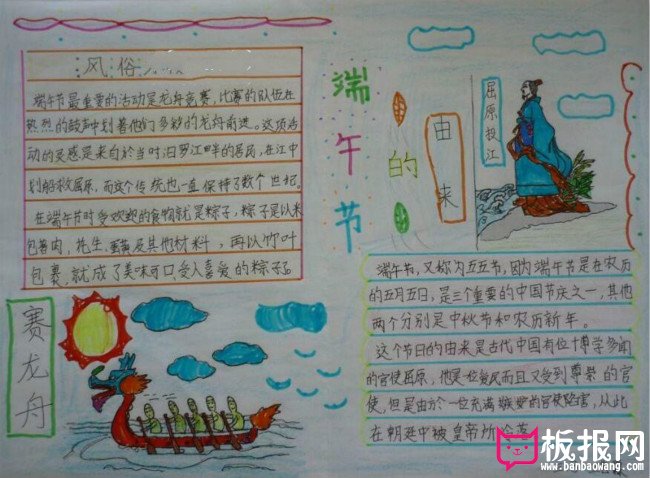 风俗
端午节最重要的活动是龙舟竞赛,比赛的队伍在
热烈的鼓声中划着他们多彩的龙舟前进。这项活
动的灵感是来自於当时汨罗江畔的居民,在江中
划船救屈原,而这个传统也一直保持了数个世纪。
在端午节时受欢迎的食物就是粽子,粽子是以米
包着肉,花生,蛋黄及其他材料,再以竹叶
包裹,就成了美味可口受人喜爱的粽子。
赛龙舟
端午节
的
由来
屈原投江
端午节,又称为五五节,因为端午节是在农历
的五月五日,是三个重要的中国节庆之一,其他
两个分别是中秋节和农历新年。
这个节日的由来是古代中国有位博学多闻
的官使屈原,他是一位爱民而且又受到尊崇的官
使,但是由於一位充满嫉妒的官使陷害,从此
在朝廷中被皇帝所
板报网
www.banbaowang.com